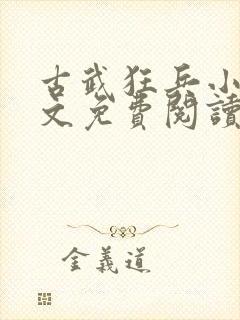 古武狂兵小
文免費閱讀
金義道